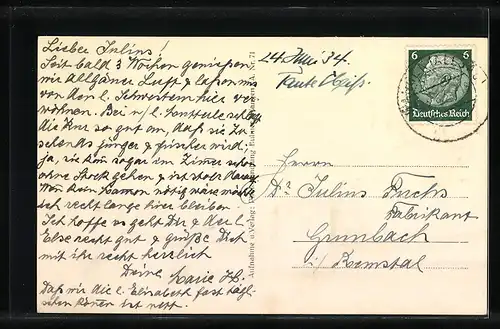 Lieber Julius!
Seit bald 3 Wochen geniessen
wir Allgäuer Luft & lassen uns
von den l. Schwestern hier ver
wöhnen. Bei m/l. schlägt
die Kur so gut an, daß sie zu
sehends jünger & frischer wird;
ja, sie kann sogar im Zimmer schon
ohne Stock gehen & ist stolz darauf.
Wenn kein nötig wäre möchte
ich recht lange hier bleiben.
Ich hoffe es geht Dir & der l.
Else recht gut & grüße Dich
mit ihr recht herzlich
Deine Marie H.
Daß wir die l. Elisabeth fast tägl.
sehen können ist nett.
24. Juni 34.
Tante
6 6
Deutsches Reich
Herrn
Dr. Julius Fuchs
Fabrikant
Grunbach
i/ Remstal
Aufnahme u. Verlag: